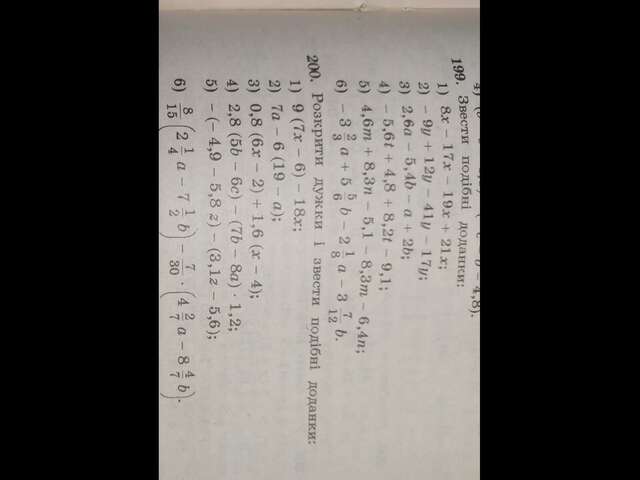 4,8).
199. Звести подібні доданки:
1) 8x − 17x − 19x + 21x;
2) −9y + 12y − 41y − 17y;
3) 2,6a − 5,4b − a + 2b;
4) −5,6t + 4,8 + 8,2t − 9,1;
5) 4,6m + 8,3n − 5,1 − 8,3m − 6,4n;
6) −3 2/3 a + 5 5/6 b − 2 1/8 a − 3 7/12 b.
200. Розкрити дужки і звести подібні доданки:
1) 9 (7x − 6) − 18x;
2) 7a − 6 (19 − a);
3) 0,8 (6x − 2) + 1,6 (x − 4);
4) 2,8 (5b − 6c) − (7b − 8a) · 1,2;
5) −(−4,9 − 5,8z) − (3,1z − 5,6);
6) 8/15 (2 1/4 a − 7 1/2 b) − 7/30 · (4 2/7 a − 8 4/7 b).